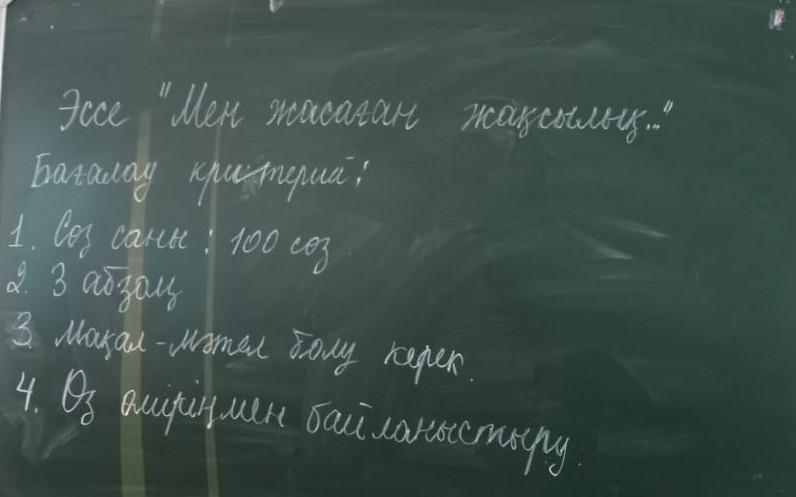 Эссе "Мен жасаған жақсылық..."
Бағалау критерий:
1. Сөз саны: 100 сөз
2. 3 абзац
3. Мақал-мәтел болу керек.
4. Өз өміріңмен байланыстыру.